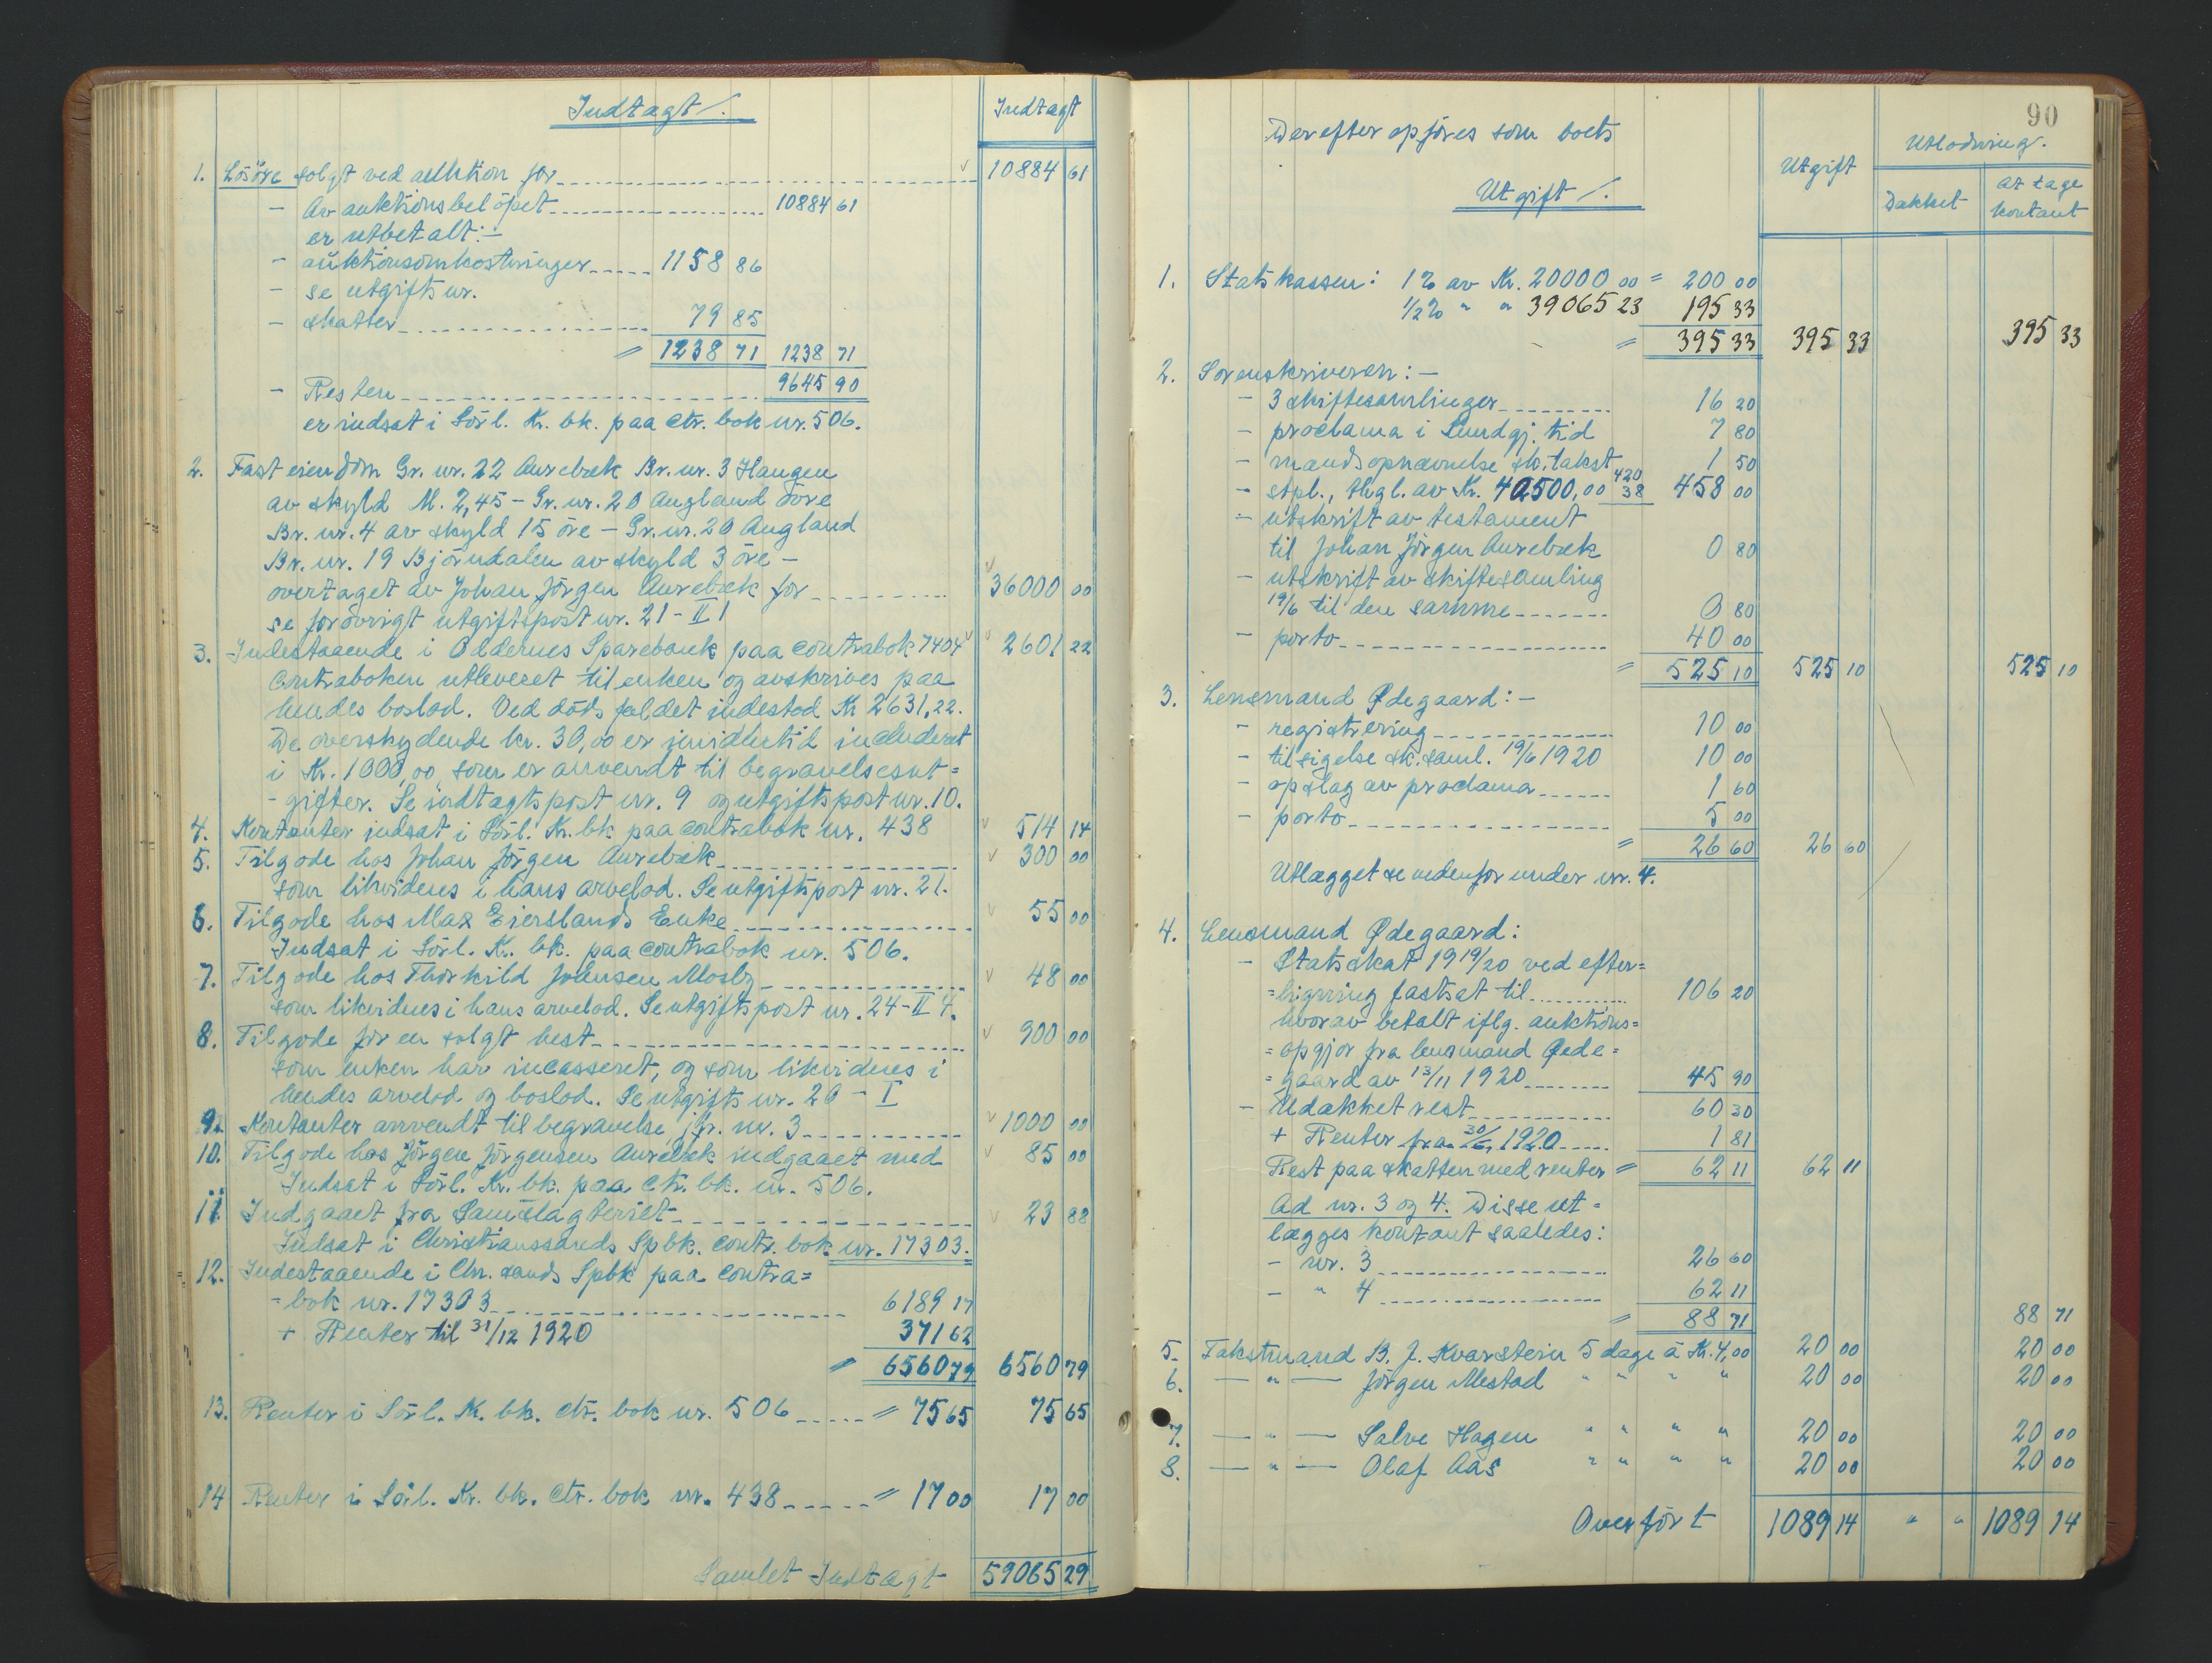 Indtægt /.
Indtægt
1. Lösöre solgt ved auktion for 10884 61
- Av auktionsbelöpet 10884 61
er utbetalt: -
- auktionsomkostninger 1158 86
- se utgifts nr.
- skatter 79 85
= 1238 71 1238 71
- Resten 9645 90
er indsat i Sörl. Kr. bk. paa Ctr. bok nr. 506.
2. Fast eiendom Gr. nr. 22 Aurebæk Br. nr. 3 Haugen
av skyld M. 2,45 - Gr. nr. 20 Augland övre
Br. nr. 4 av skyld 15 öre - Gr. nr. 20 Augland
Br. nr. 19 Björndalen av skyld 3 öre -
overtaget av Johan Jörgen Aurebæk for 36000 00
se forövrigt utgiftspost nr. 21 - II 1
3. Indestaaende i Oddernes Sparebank paa contrabok 7404 2601 22
Contraboken utleveret til enken og avskrives paa
hendes boslod. Ved dödsfaldet indestod Kr 2631,22.
De overskydende kr. 30,00 er imidlertid includeret
i Kr. 1000,00 som er anvendt til begravelsesut=
-gifter. Se indtægtspost nr. 9 og utgiftspost nr. 10.
4. Kontanter indsat i Sörl. Kr. bk paa contrabok nr. 438 514 14
5. Tilgode hos Johan Jörgen Aurebæk 300 00
som likvideres i hans arvelod. Se utgiftspost nr. 21.
6. Tilgode hos Max Eierslands Enke 55 00
Indsat i Sörl. Kr. bk. paa contrabok nr. 506.
7. Tilgode hos Thorkild Johnsen Mosby 48 00
som likvideres i hans arvelod. Se utgiftspost nr. 24 - II 4.
8. Tilgode for en solgt hest 900 00
som enken har incasseret, og som likvideres i
hendes arvelod og boslod. Se utgifts nr. 20 - I
9. Kontanter anvendt til begravelse, jfr. nr. 3 1000 00
10. Tilgode hos Jörgen Jörgensen Aurebæk indgaaet med 85 00
Indsat i Sörl. Kr. bk. paa Ctr. bk. nr. 506.
11. Indgaaet fra Samslagteriet 23 88
Indsat i Christianssands Spbk. Contr. bok nr. 17303.
12. Indestaaende i Chr. sands Spbk paa Contra=
=bok nr. 17303 6189 17
+ Renter til 31/12 1920 371 62
= 6560 79 6560 79
13. Renter i Sörl. K. bk. Ctr. bok nr. 506 = 75 65 75 65
14 Renter i Sörl. Kr. bk. Ctr. bok nr. 438 = 17 00 17 00
Samlet Indtægt 59065 29
90
Derefter opföres som boets
Utgift /.
Utgift
Utlodning.
Dækket
At tage kontant
1. Statskassen: 1% av Kr. 20000 00 = 200 00
1/2% " " 39065 23 195 33
= 395 33 395 33 395 33
2. Sorenskriveren: -
- 3 skiftesamlinger 16 20
- proclama i Lundgj. tid 7 80
- mandsopnævnelse sk. takst 1 50
- stpl., thgl. av Kr. 40500,00 420 38 458 00
- utskrift av testament
til Johan Jörgen Aurebæk 0 80
- utskrift av skiftesamling
19/6 til den samme 0 80
- porto 40 00
= 525 10 525 10 525 10
3. Lensmand Ødegaard: -
- registrering 10 00
- tilsigelse sk. saml. 19/6 1920 10 00
- opslag av proclama 1 60
- porto 5 00
= 26 60 26 60
Utlægget se nedenfor under nr. 4.
4. Lensmand Ødegaard:
- Statsskat 1919/20 ved efter=
=ligning fastsat til 106 20
hvorav betalt iflg. auktions=
=opgjör fra lensmand Øde=
=gaard av 13/11 1920 45 90
- Udækket rest 60 30
+ Renter fra 30/6 1920 1 81
Rest paa skatten med renter = 62 11 62 11
Ad nr. 3 og 4. Disse ut=
lægges kontant saaledes:
- nr. 3 26 60
- " 4 62 11
= 88 71 88 71
5. Takstmand B. J. Kvarstein 5 dage á Kr. 4,00 20 00 20 00
6. — " — Jörgen Mestad " " " " 20 00 20 00
7. — " — Salve Hagen " " " " 20 00 20 00
8. — " — Olaf Aas " " " " 20 00 20 00
Overfört 1089 14 " " 1089 14